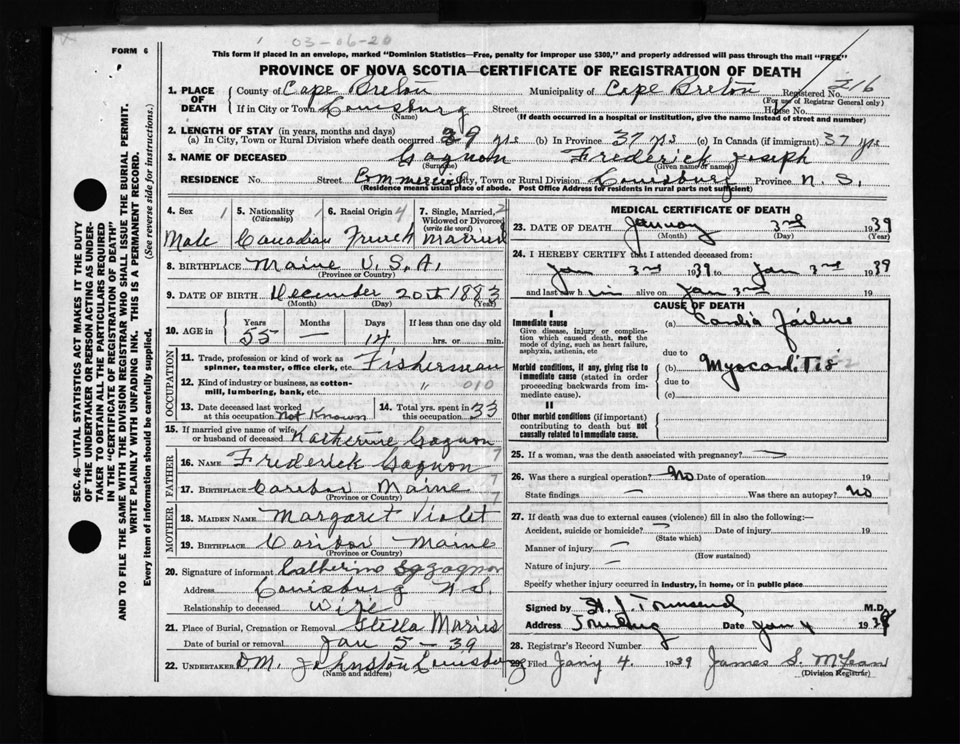 03-06-20
FORM 6
This form if placed in an envelope, marked "Dominion Statistics—Free, penalty for improper use $300," and properly addressed will pass through the mail "FREE"
PROVINCE OF NOVA SCOTIA—CERTIFICATE OF REGISTRATION OF DEATH
1. PLACE OF DEATH
County of Cape Breton Municipality of Cape Breton Registered No. 216
(For use of Registrar General only)
If in City or Town Louisburg Street House No.
(Name) (If death occurred in a hospital or institution, give the name instead of street and number)
2. LENGTH OF STAY (in years, months and days)
(a) In City, Town or Rural Division where death occurred 39 yrs (b) In Province 37 yrs (c) In Canada (if immigrant) 37 yrs
3. NAME OF DECEASED Gagnon Frederick Joseph
(Surname) (Given name or names)
RESIDENCE No. Street Commercial City, Town or Rural Division Louisburg Province N. S.
(Residence means usual place of abode. Post Office Address for residents in rural parts not sufficient)
4. Sex 1 5. Nationality 1 6. Racial Origin 4 7. Single, Married, 2
(Citizenship) Widowed or Divorced
(write the word)
Male Canadian French Married
8. BIRTHPLACE Maine U.S.A.
(Province or Country)
9. DATE OF BIRTH December 20th 1883
(Month) (Day) (Year)
10. AGE in Years Months Days If less than one day old
55 — 14 hrs. or min.
OCCUPATION
11. Trade, profession or kind of work as spinner, teamster, office clerk, etc. Fisherman
12. Kind of industry or business, as cotton-mill, lumbering, bank, etc. " 010
13. Date deceased last worked at this occupation Not Known 14. Total yrs. spent in this occupation 33
15. If married give name of wife or husband of deceased Katherine Gagnon
FATHER
16. NAME Frederick Gagnon 7
17. BIRTHPLACE Carebou Maine 7
(Province or Country)
MOTHER
18. MAIDEN NAME Margaret Violet
19. BIRTHPLACE Caribou Maine
(Province or Country)
20. Signature of informant Catherine Gagnon
Address Louisburg N.S.
Relationship to deceased Wife
21. Place of Burial, Cremation or Removal Stella Maries
Date of burial or removal Jan 5 - 39
22. UNDERTAKER D.M. Johnston Louisburg
(Name and address)
MEDICAL CERTIFICATE OF DEATH
23. DATE OF DEATH January 3rd 1939
(Month) (Day) (Year)
24. I HEREBY CERTIFY that I attended deceased from:
Jan 3rd 1939 to Jan 3rd 1939
and last saw him alive on Jan 3rd 19
CAUSE OF DEATH
I
Immediate cause (a) Cardia Failure
Give disease, injury or complication which caused death, not the mode of dying, such as heart failure, asphyxia, asthenia, etc
due to
Morbid conditions, if any, giving rise to immediate cause (stated in order proceeding backwards from immediate cause). (b) Myocarditis
due to
(c)
II
Other morbid conditions (if important) contributing to death but not causally related to immediate cause.
25. If a woman, was the death associated with pregnancy?
26. Was there a surgical operation? No Date of operation 19
State findings — Was there an autopsy? No
27. If death was due to external causes (violence) fill in also the following:—
Accident, suicide or homicide? — Date of injury 19
(State which)
Manner of injury —
(How sustained)
Nature of injury —
Specify whether injury occurred in industry, in home, or in public place
Signed by H. J. Townsend M.D.
Address Date Jan 4 1939
28. Registrar's Record Number
29. Filed Jany 4. 1939 James S. McLean
(Division Registrar)
SEC. 46—VITAL STATISTICS ACT MAKES IT THE DUTY
OF THE UNDERTAKER OR PERSON ACTING AS UNDER-
TAKER TO OBTAIN ALL THE PARTICULARS REQUIRED
IN THE "CERTIFICATE OF REGISTRATION OF DEATH"
AND TO FILE THE SAME WITH THE DIVISION REGISTRAR WHO SHALL ISSUE THE BURIAL PERMIT.
WRITE PLAINLY WITH UNFADING INK. THIS IS A PERMANENT RECORD.
Every item of information should be carefully supplied. (See reverse side for instructions.)